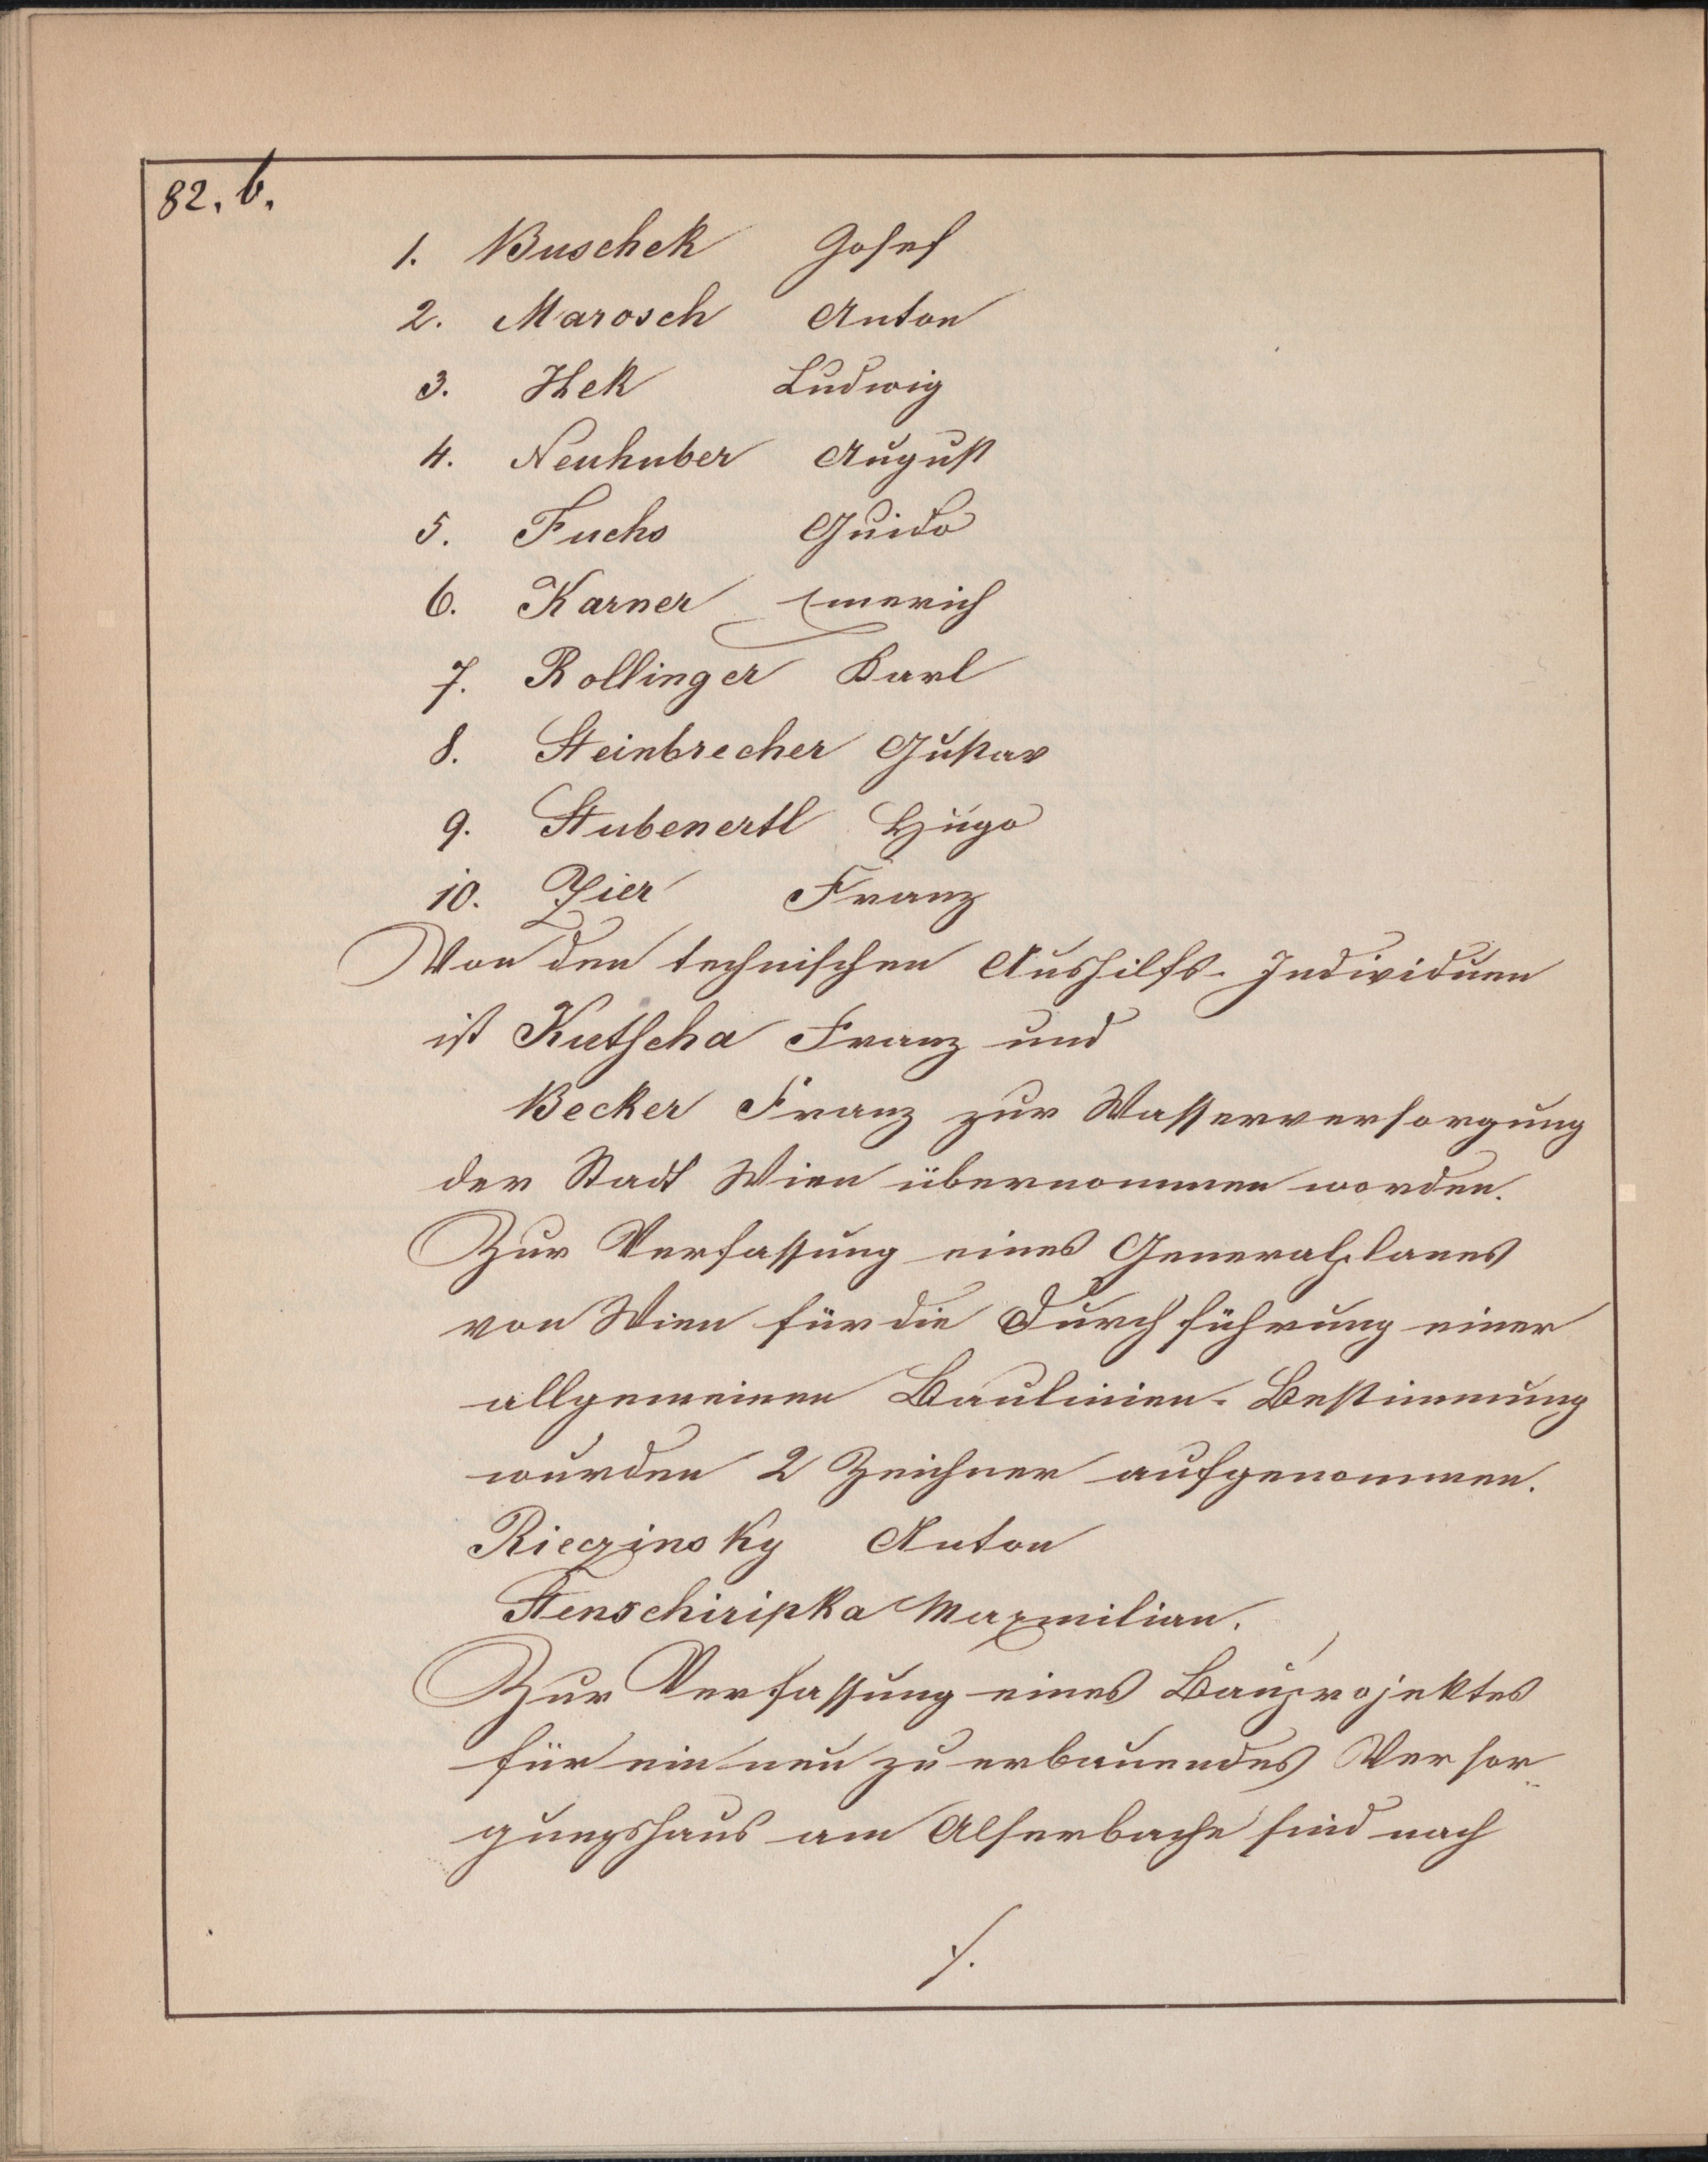 82. b.
1. Buschek Josef
2. Marosch Anton
3. Hek Ludwig
4. Neuhuber August
5. Fuchs Guido
6. Karner Emerich
7. Rollinger Karl
8. Steinbrecher Gustav
9. Stubenertl Hugo
10. Zier Franz
Von den technischen Aushilfs-Individuen
ist Kutscha Franz und
Becker Franz zur Wasserversorgung
der Stadt Wien übernommen worden.
Zur Verfassung eines Generalplanes
von Wien für die Durchführung einer
allgemeinen Baulinien-Bestimmung
wurden 2 Zeichner aufgenommen.
Rieczinsky Anton
Stenschiripka Maxmilian.
Zur Verfassung eines Bauprojektes
für ein neu zu erbauendes Versor-
gungshaus am Alserbache sind nach
./.